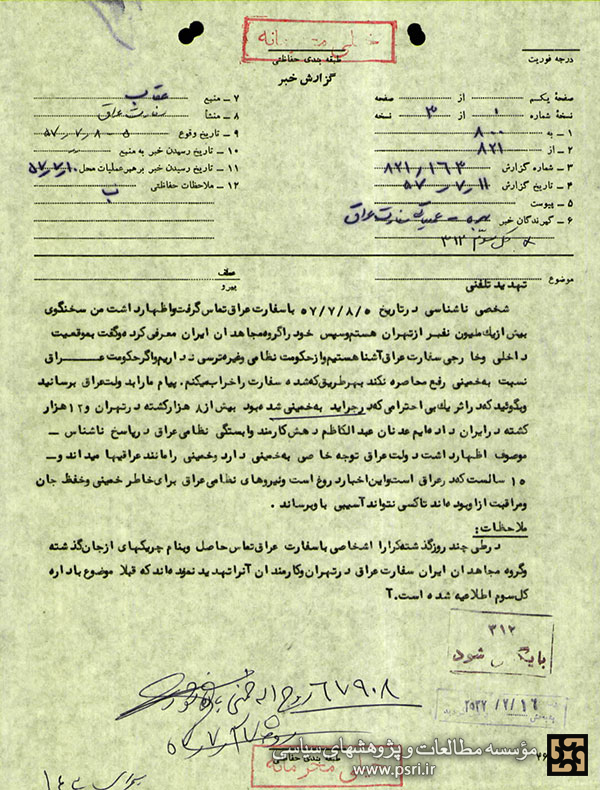 خیلی محرمانه
طبقه بندی حفاظتی
درجه فوریت
گزارش خبر
صفحهٔ یکم از صفحه
نسخهٔ شماره ۱ از ۳ نسخه
۱ ـ به ۸۰۰
۲ ـ از ۸۲۱
۳ ـ شماره گزارش ۸۲۱٫۱۶۳
۴ ـ تاریخ گزارش ۵۷٫۷٫۱۱
۵ ـ پیوست
۶ ـ گیرندگان خبر سفارت عراق
۳۱۲
۷ ـ منبع عقاب
۸ ـ منشأ سفارت عراق
۹ ـ تاریخ وقوع ۵ـ۵۷٫۷٫۸
۱۰ ـ تاریخ رسیدن خبر به منبع
۱۱ ـ تاریخ رسیدن خبر برهبر عملیات محل ۵۷٫۷٫۱۰
۱۲ ـ ملاحظات حفاظتی
موضوع تهدید تلفنی
عطف
پیرو
شخصی ناشناسی درتاریخ ۵۷/۷/۸/۵ با سفارت عراق تماس گرفت واظهارداشت من سخنگوی
بیش از یک ملیون نفر از تهران هستم وسپس خود را گروه مجاهدان ایران معرفی کرد وگفت بموقعیت
داخلی وخارجی سفارت عراق آشنا هستیم واز حکومت نظامی وغیره ترسی نداریم واگر حکومت عـــراق
نسبت به خمینی رفع محاصره نکند بهر طریق که شده سفارت را خراب میکنم . پیام مارابدولت عراق برسانید
وبگوئید که در اثر یک بی احترامی که در جراید به خمینی شده بود بیش از ۸ هزار کشته در تهران و ۱۲ هزار
کشته در ایران داده ایم عدنان عبدالکاظم دهش کارمند وابستگی نظامی عراق در پاسخ ناشناس ـ
موصوف اظهارداشت دولت عراق توجه خاصی به خمینی دارد وخمینی را مانند عراقیها میداند و ـ
۱۵ سالست که در عراق است واین اخبار دروغ است ونیروهای نظامی عراق برای خاطر خمینی وحفظ جان
ومراقبت از او بوده اند تا کسی نتواند آسیبی با وبرساند .
ملاحظات :
درطی چند روز گذشته کرارا اشخاصی با سفارت عراق تماس حاصل وبنام چریکهای از جان گذشته
وگروه مجاهدان ایران سفارت عراق در تهران وکارمندان آنرا تهدید نموده اند که قبلا موضوع باداره
کل سوم اطلاعیه شده است. آ
۳۱۲
بایگانی شود
۲۵۳۷/۷/۱۶
۶۷۹۰۸ روح اله خمینی
مؤسسه مطالعات و پژوهشهای سیاسی
www.psri.ir
طبقه بندی حفاظتی
خیلی محرمانه